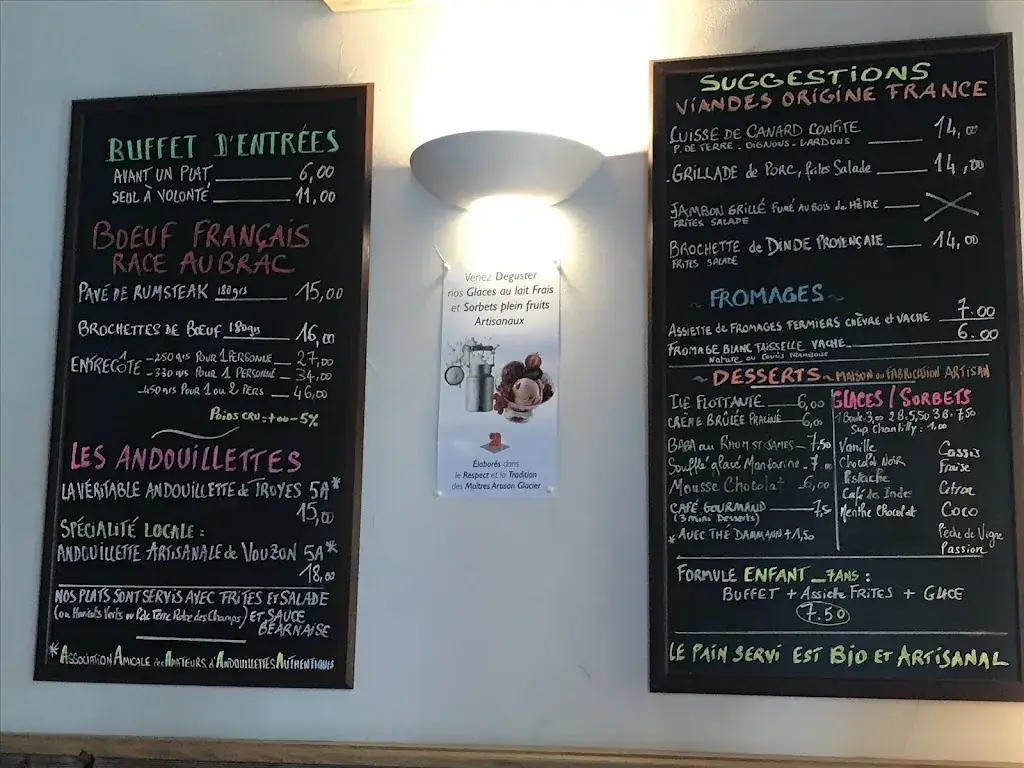 BUFFET D'ENTRÉES
AVANT UN PLAT 6,00
SEUL À VOLONTÉ 11,00
BOEUF FRANÇAIS
RACE AUBRAC
PAVÉ DE RUMSTEAK 180grs 15,00
BROCHETTES DE BOEUF 180grs 16,00
ENTRECÔTE - 250 grs POUR 1 PERSONNE 27,00
- 330 grs POUR 1 PERSONNE 34,00
- 450 grs POUR 1 ou 2 PERS 46,00
POIDS CRU = + ou - 5%
LES ANDOUILLETTES
LA VÉRITABLE ANDOUILLETTE de TROYES 5A*
15,00
SPÉCIALITÉ LOCALE :
ANDOUILLETTE ARTISANALE de VOUZON 5A*
18,00
NOS PLATS SONT SERVIS AVEC FRITES ET SALADE
(ou Haricots Verts ou P de Terre Robe des Champs) ET SAUCE
BÉARNAISE
* ASSOCIATION AMICALE des AMATEURS d'ANDOUILLETTES AUTHENTIQUES
Venez Déguster
nos Glaces au lait Frais
et Sorbets plein fruits
Artisanaux
Élaborés dans
le Respect et la Tradition
des Maîtres Artisan Glacier
SUGGESTIONS
VIANDES ORIGINE FRANCE
CUISSE DE CANARD CONFITE 14,00
P. DE TERRE - OIGNONS - LARDONS
GRILLADE de PORC, frites Salade 14,00
JAMBON GRILLÉ FUMÉ AU BOIS de HÊTRE
FRITES SALADE
BROCHETTE de DINDE PROVENÇALE 14,00
FRITES SALADE
~ FROMAGES ~
ASSIETTE de FROMAGES FERMIERS CHÈVRE et VACHE 7.00
FROMAGE BLANC FAISSELLE VACHE 6.00
Nature ou Coulis Framboise
~ DESSERTS ~ MAISON ou FABRICATION ARTISAN
ILE FLOTTANTE 6,00
CRÈME BRÛLÉE PRALINÉ 6,00
BABA au RHUM ST JAMES 7,50
Soufflé glacé Mandarine 7.00
Mousse Chocolat 6,00
CAFÉ GOURMAND 7,5
(3 mini Desserts)
* AVEC THÉ DAMMANN + 1,50
GLACES / SORBETS
1 Boule: 3,00 2 B: 5,50 3 B: 7,50
Sup. Chantilly: 1.00
Vanille
Chocolat Noir
Pistache
Café des Indes
Menthe Chocolat
Cassis
Fraise
Citron
Coco
Pêche de Vigne
Passion
FORMULE ENFANT _ 7ANS :
BUFFET + Assiette FRITES + GLACE
7.50
LE PAIN SERVI EST BIO ET ARTISANAL